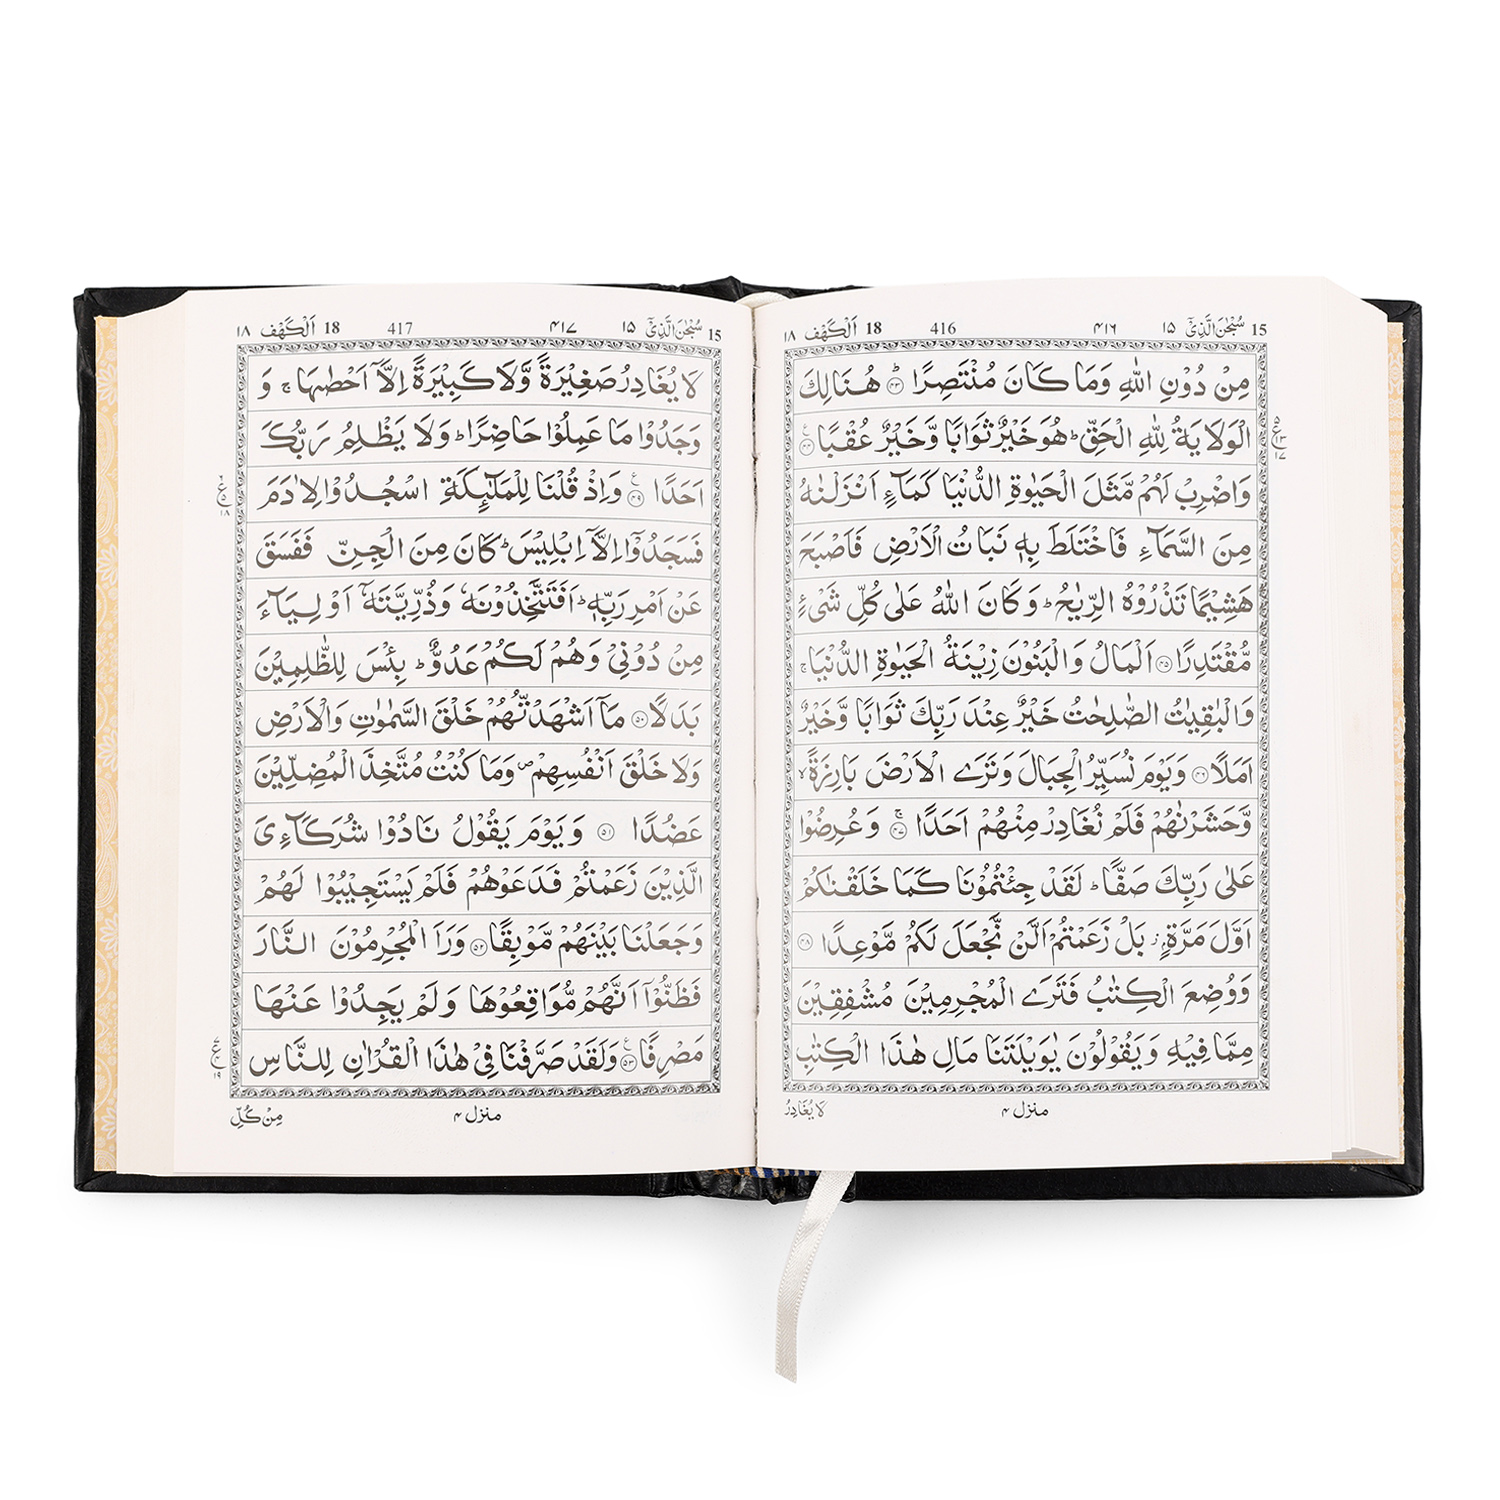 15 سُبْحٰنَ الَّذِیْٓ ۱۵ ۴۱۶ 416 18 اَلْكَهْف ۱۸
مِنْ دُوْنِ اللّٰهِ وَمَا كَانَ مُنْتَصِرًا ؕ﴿۴۳﴾ هُنَالِكَ
الْوَلَایَةُ لِلّٰهِ الْحَقِّ ؕ هُوَ خَیْرٌ ثَوَابًا وَّخَیْرٌ عُقْبًا ﴿۴۴﴾ع
وَاضْرِبْ لَهُمْ مَّثَلَ الْحَیٰوةِ الدُّنْیَا كَمَآءٍ اَنْزَلْنٰهُ
مِنَ السَّمَآءِ فَاخْتَلَطَ بِهٖ نَبَاتُ الْاَرْضِ فَاَصْبَحَ
هَشِیْمًا تَذْرُوْهُ الرِّیٰحُ ؕ وَكَانَ اللّٰهُ عَلٰی كُلِّ شَیْءٍ
مُّقْتَدِرًا ﴿۴۵﴾ اَلْمَالُ وَالْبَنُوْنَ زِیْنَةُ الْحَیٰوةِ الدُّنْیَا ۚ
وَالْبٰقِیٰتُ الصّٰلِحٰتُ خَیْرٌ عِنْدَ رَبِّكَ ثَوَابًا وَّخَیْرٌ
اَمَلًا ﴿۴۶﴾ وَیَوْمَ نُسَیِّرُ الْجِبَالَ وَتَرَی الْاَرْضَ بَارِزَةً ۙ
وَّحَشَرْنٰهُمْ فَلَمْ نُغَادِرْ مِنْهُمْ اَحَدًا ﴿ۚ۴۷﴾ وَعُرِضُوْا
عَلٰی رَبِّكَ صَفًّا ؕ لَقَدْ جِئْتُمُوْنَا كَمَا خَلَقْنٰكُمْ
اَوَّلَ مَرَّةٍۭ ؗ بَلْ زَعَمْتُمْ اَلَّنْ نَّجْعَلَ لَكُمْ مَّوْعِدًا ﴿۴۸﴾
وَوُضِعَ الْكِتٰبُ فَتَرَی الْمُجْرِمِیْنَ مُشْفِقِیْنَ
مِمَّا فِیْهِ وَیَقُوْلُوْنَ یٰوَیْلَتَنَا مَالِ هٰذَا الْكِتٰبِ
منزل ۴
لَا یُغَادِرُ
15 سُبْحٰنَ الَّذِیْٓ ۱۵ ۴۱۷ 417 18 اَلْكَهْف ۱۸
لَا یُغَادِرُ صَغِیْرَةً وَّلَا كَبِیْرَةً اِلَّاۤ اَحْصٰىهَا ۚ وَ
وَجَدُوْا مَا عَمِلُوْا حَاضِرًا ؕ وَلَا یَظْلِمُ رَبُّكَ
اَحَدًا ﴿۴۹﴾ع وَاِذْ قُلْنَا لِلْمَلٰٓئِكَةِ اسْجُدُوْا لِاٰدَمَ
فَسَجَدُوْۤا اِلَّاۤ اِبْلِیْسَ ؕ كَانَ مِنَ الْجِنِّ فَفَسَقَ
عَنْ اَمْرِ رَبِّهٖ ؕ اَفَتَتَّخِذُوْنَهٗ وَذُرِّیَّتَهٗۤ اَوْلِیَآءَ
مِنْ دُوْنِیْ وَهُمْ لَكُمْ عَدُوٌّ ؕ بِئْسَ لِلظّٰلِمِیْنَ
بَدَلًا ﴿۵۰﴾ مَاۤ اَشْهَدْتُّهُمْ خَلْقَ السَّمٰوٰتِ وَالْاَرْضِ
وَلَا خَلْقَ اَنْفُسِهِمْ ۪ وَمَا كُنْتُ مُتَّخِذَ الْمُضِلِّیْنَ
عَضُدًا ﴿۵۱﴾ وَیَوْمَ یَقُوْلُ نَادُوْا شُرَكَآءِیَ
الَّذِیْنَ زَعَمْتُمْ فَدَعَوْهُمْ فَلَمْ یَسْتَجِیْبُوْا لَهُمْ
وَجَعَلْنَا بَیْنَهُمْ مَّوْبِقًا ﴿۵۲﴾ وَرَاَ الْمُجْرِمُوْنَ النَّارَ
فَظَنُّوْۤا اَنَّهُمْ مُّوَاقِعُوْهَا وَلَمْ یَجِدُوْا عَنْهَا
مَصْرِفًا ﴿۵۳﴾ع وَلَقَدْ صَرَّفْنَا فِیْ هٰذَا الْقُرْاٰنِ لِلنَّاسِ
منزل ۴
مِنْ كُلِّ